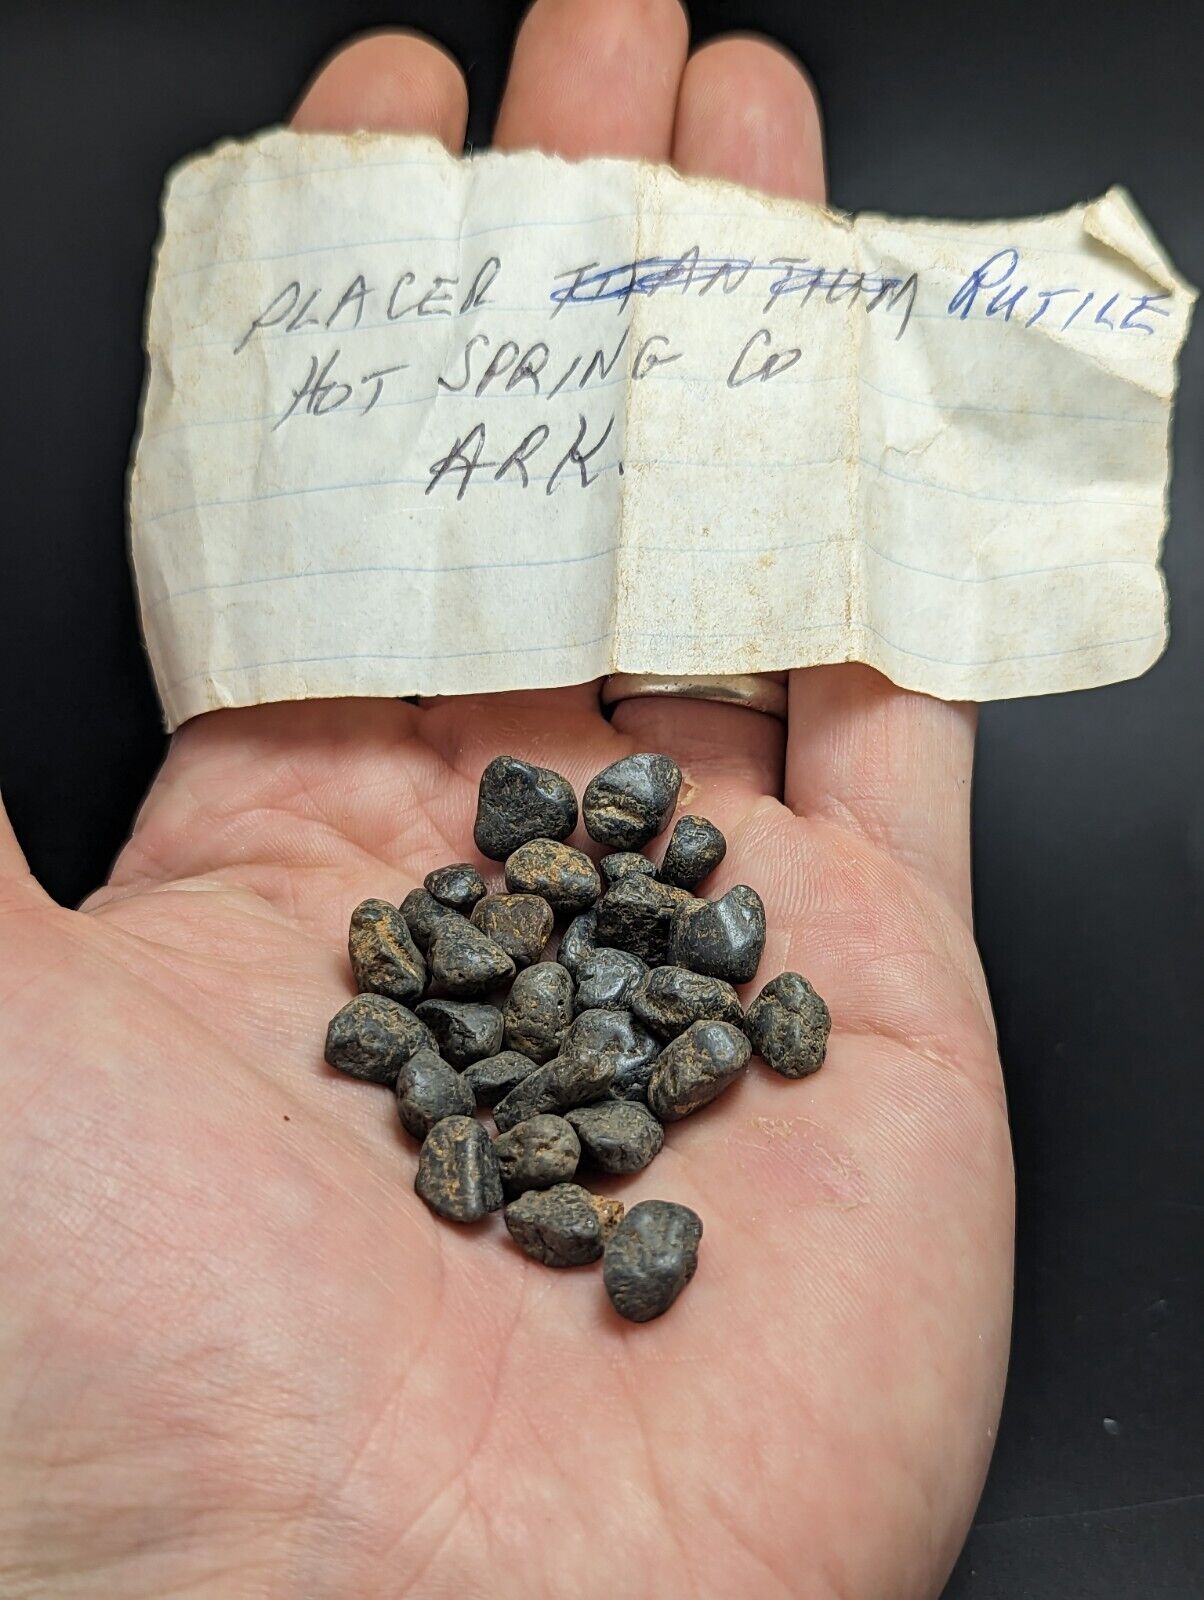 PLACER TITANIUM RUTILE
HOT SPRING CO
ARK.